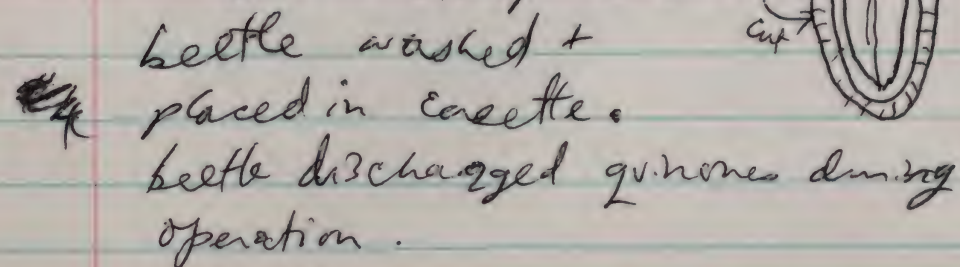 cut
beetle washed +
placed in
beetle discharged quinones during
operation.